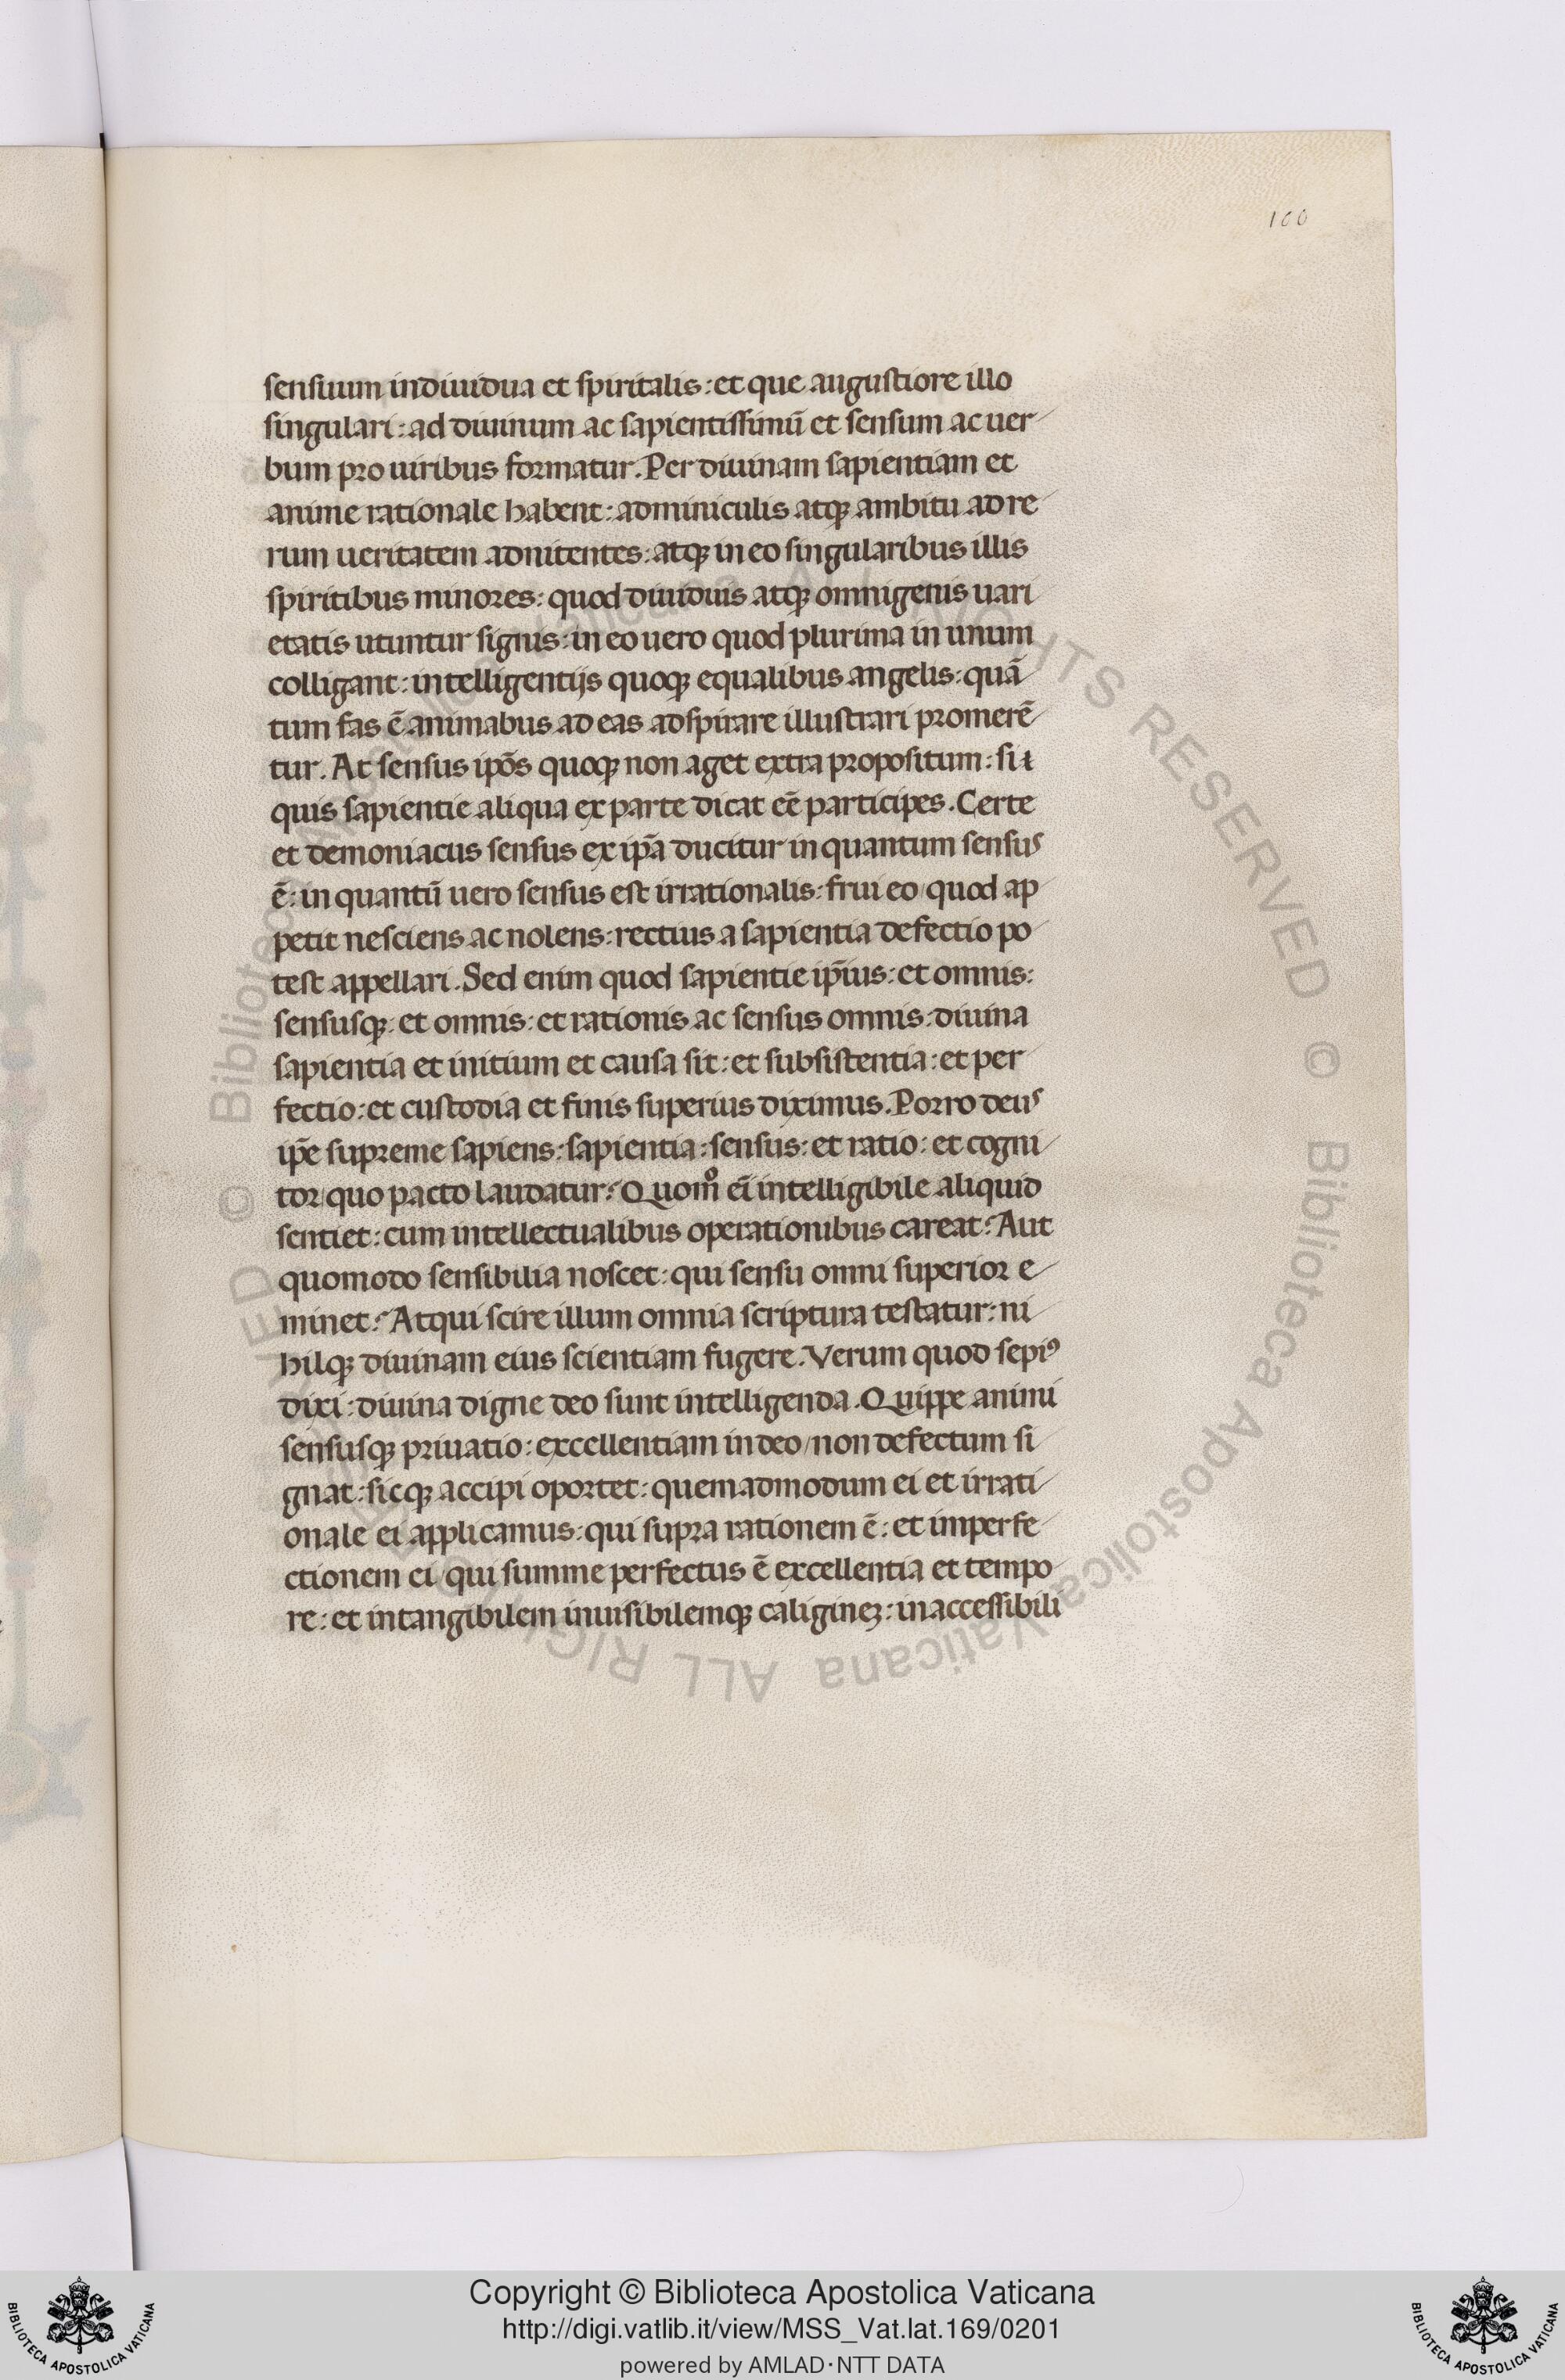 100
sensuum indiuidua et spiritalis: et que augustiore illo
singulari: ad diuinum ac sapientissimū et sensum ac uer
bum pro uiribus formatur. Per diuinam sapientiam et
anime rationale habent: adminiculis atqꝫ ambitu ad re
rum ueritatem adnitentes: atqꝫ in eo singularibus illis
spiritibus minores: quod diuiduis atqꝫ omnigenis uari
etatis utuntur signis: in eo uero quod plurima in unum
colligant: intelligentijs quoqꝫ equalibus angelis: quā
tum fas ē animabus ad eas adspirare illustrari promerē
tur. At sensus ipōs quoqꝫ non aget extra propositum: si
quis sapientie aliqua ex parte dicat eē participes. Certe
et demoniacus sensus ex ip̄a ducitur in quantum sensus
ē: in quantū uero sensus est irrationalis: frui eo/ quod ap
petit nesciens ac nolens: rectius a sapientia defectio po
test appellari. Sed enim quod sapientie ip̄ius: et omnis:
sensusqꝫ: et omnis: et rationis ac sensus omnis: diuina
sapientia et initium et causa sit: et subsistentia: et per
fectio: et custodia et finis superius diximus. Porro deus
ip̄e supreme sapiens: sapientia: sensus: et ratio: et cogni
tor/ quo pacto laudatur? Quom̊ eī intelligibile aliquid
sentiet: cum intellectualibus operationibus careat? Aut
quomodo sensibilia noscet: qui sensu omni superior e
minet? Atqui scire illum omnia scriptura testatur: ni
hilqꝫ diuinam eius scientiam fugere. Verum quod sepiꝰ
dixi: diuina digne deo sunt intelligenda. Quippe animi
sensusqꝫ priuatio: excellentiam in deo/ non defectum si
gnat: sicqꝫ accipi oportet: quemadmodum ei et irrati
onale ei applicamus: qui supra rationem ē: et imperfe
ctionem ei/ qui summe perfectus ē excellentia et tempo
re: et intangibilem inuisibilemqꝫ caligineꝫ: inaccessibili
Copyright © Biblioteca Apostolica Vaticana
http://digi.vatlib.it/view/MSS_Vat.lat.169/0201
powered by AMLAD·NTT DATA
BIBLIOTECA APOSTOLICA VATICANA
BIBLIOTECA APOSTOLICA VATICANA
© Biblioteca Apostolica Vaticana ALL RIGHTS RESERVED
© Biblioteca Apostolica Vaticana ALL RIGHTS RESERVED